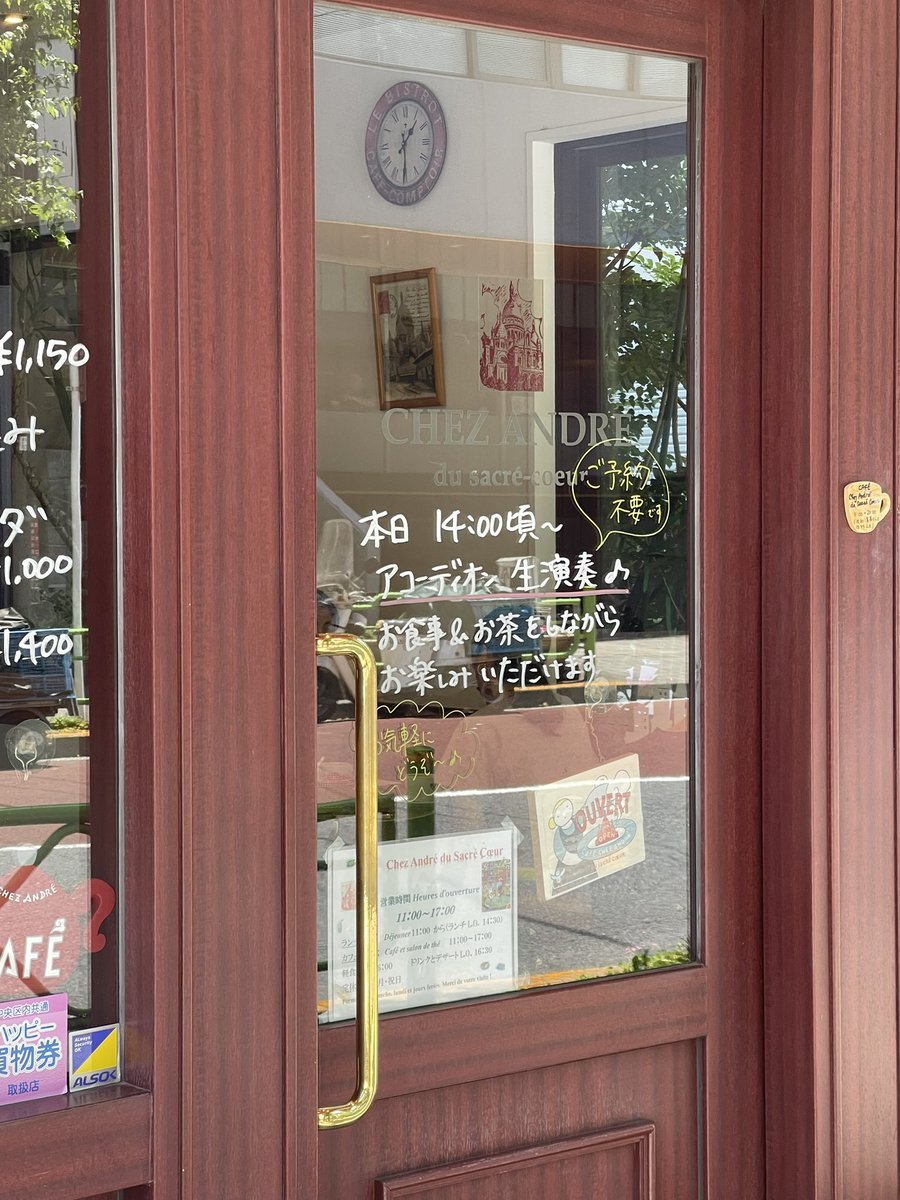 LE BISTROT
CAFÉ-COMPTOIR
CHEZ ANDRÉ
du sacré-coeur
ご予約
不要です
本日 14:00頃~
アコーディオン 生演奏♪
お食事&お茶をしながら
お楽しみいただけます
お気軽に
どうぞ~♪
OUVERT
Chez André du Sacré Cœur
営業時間 Heures d'ouverture
11:00~17:00
Déjeuner 11:00 から(ランチ L.O. 14:30)
Café et salon de thé 11:00~17:00
ドリンクとデザート L.O. 16:30
月・祝日
¥1,150
み
ダ
1,000
1,400
CHEZ ANDRÉ
CAFÉ
中央区内共通
ハッピー
買物券
取扱店
Always
Security
OK
ALSOK
CAFÉ
Chez André
du Sacré Cœur